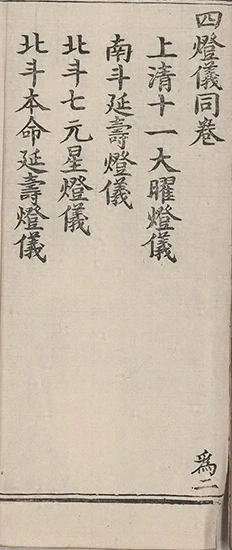 四燈儀同卷
上清十一大曜燈儀
南斗延壽燈儀
北斗七元星燈儀
北斗本命延壽燈儀
爲二